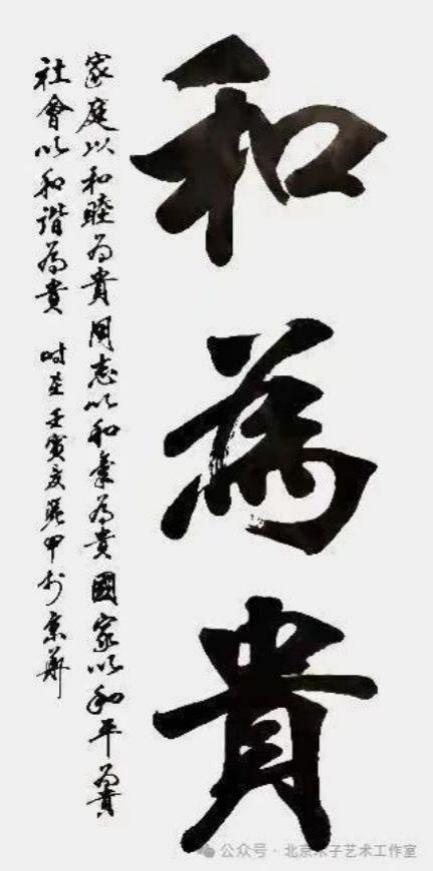 和為貴
家庭以和睦為貴同志以和氣為貴國家以和平為貴
社會以和諧為貴 時在壬寅友張甲於京華
公众号·北京木子艺术工作室